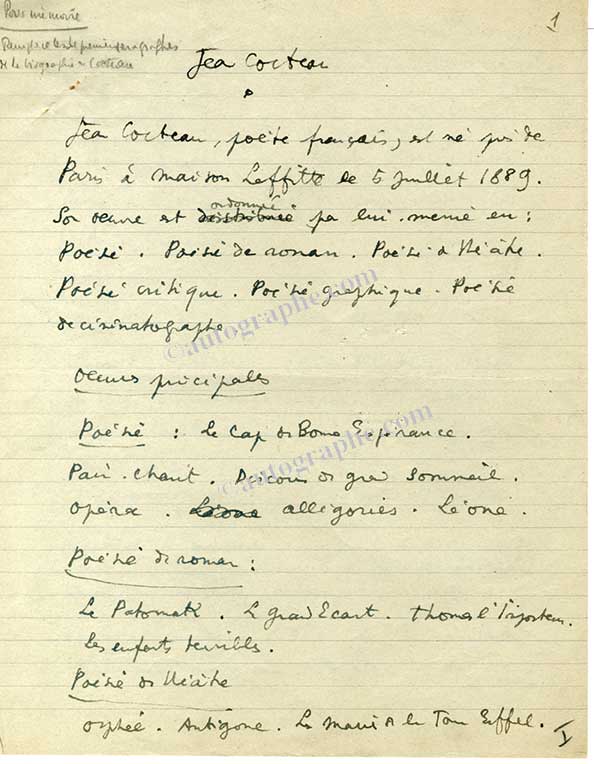 Pour mémoire
1
de la biographie Cocteau
Jean Cocteau
Jean Cocteau, poète français, est né près de
Paris à Maison Laffitte le 5 Juillet 1889.
ordonnée
Son œuvre est distribuée par lui-même en :
Poésie. Poésie de roman. Poésie de théâtre.
Poésie critique. Poésie graphique. Poésie
de cinématographe.
©autographe.com
Œuvres principales
Poésie : Le Cap de Bonne Espérance.
Plain-chant. Discours du grand sommeil.
©autographe.com
Opéra. Léone allégories. Léone.
Poésie de roman :
Le Potomak. Le grand Ecart. Thomas l'Imposteur.
Les enfants terribles.
Poésie de théâtre
Orphée. Antigone. Les Mariés de la Tour Eiffel.
I